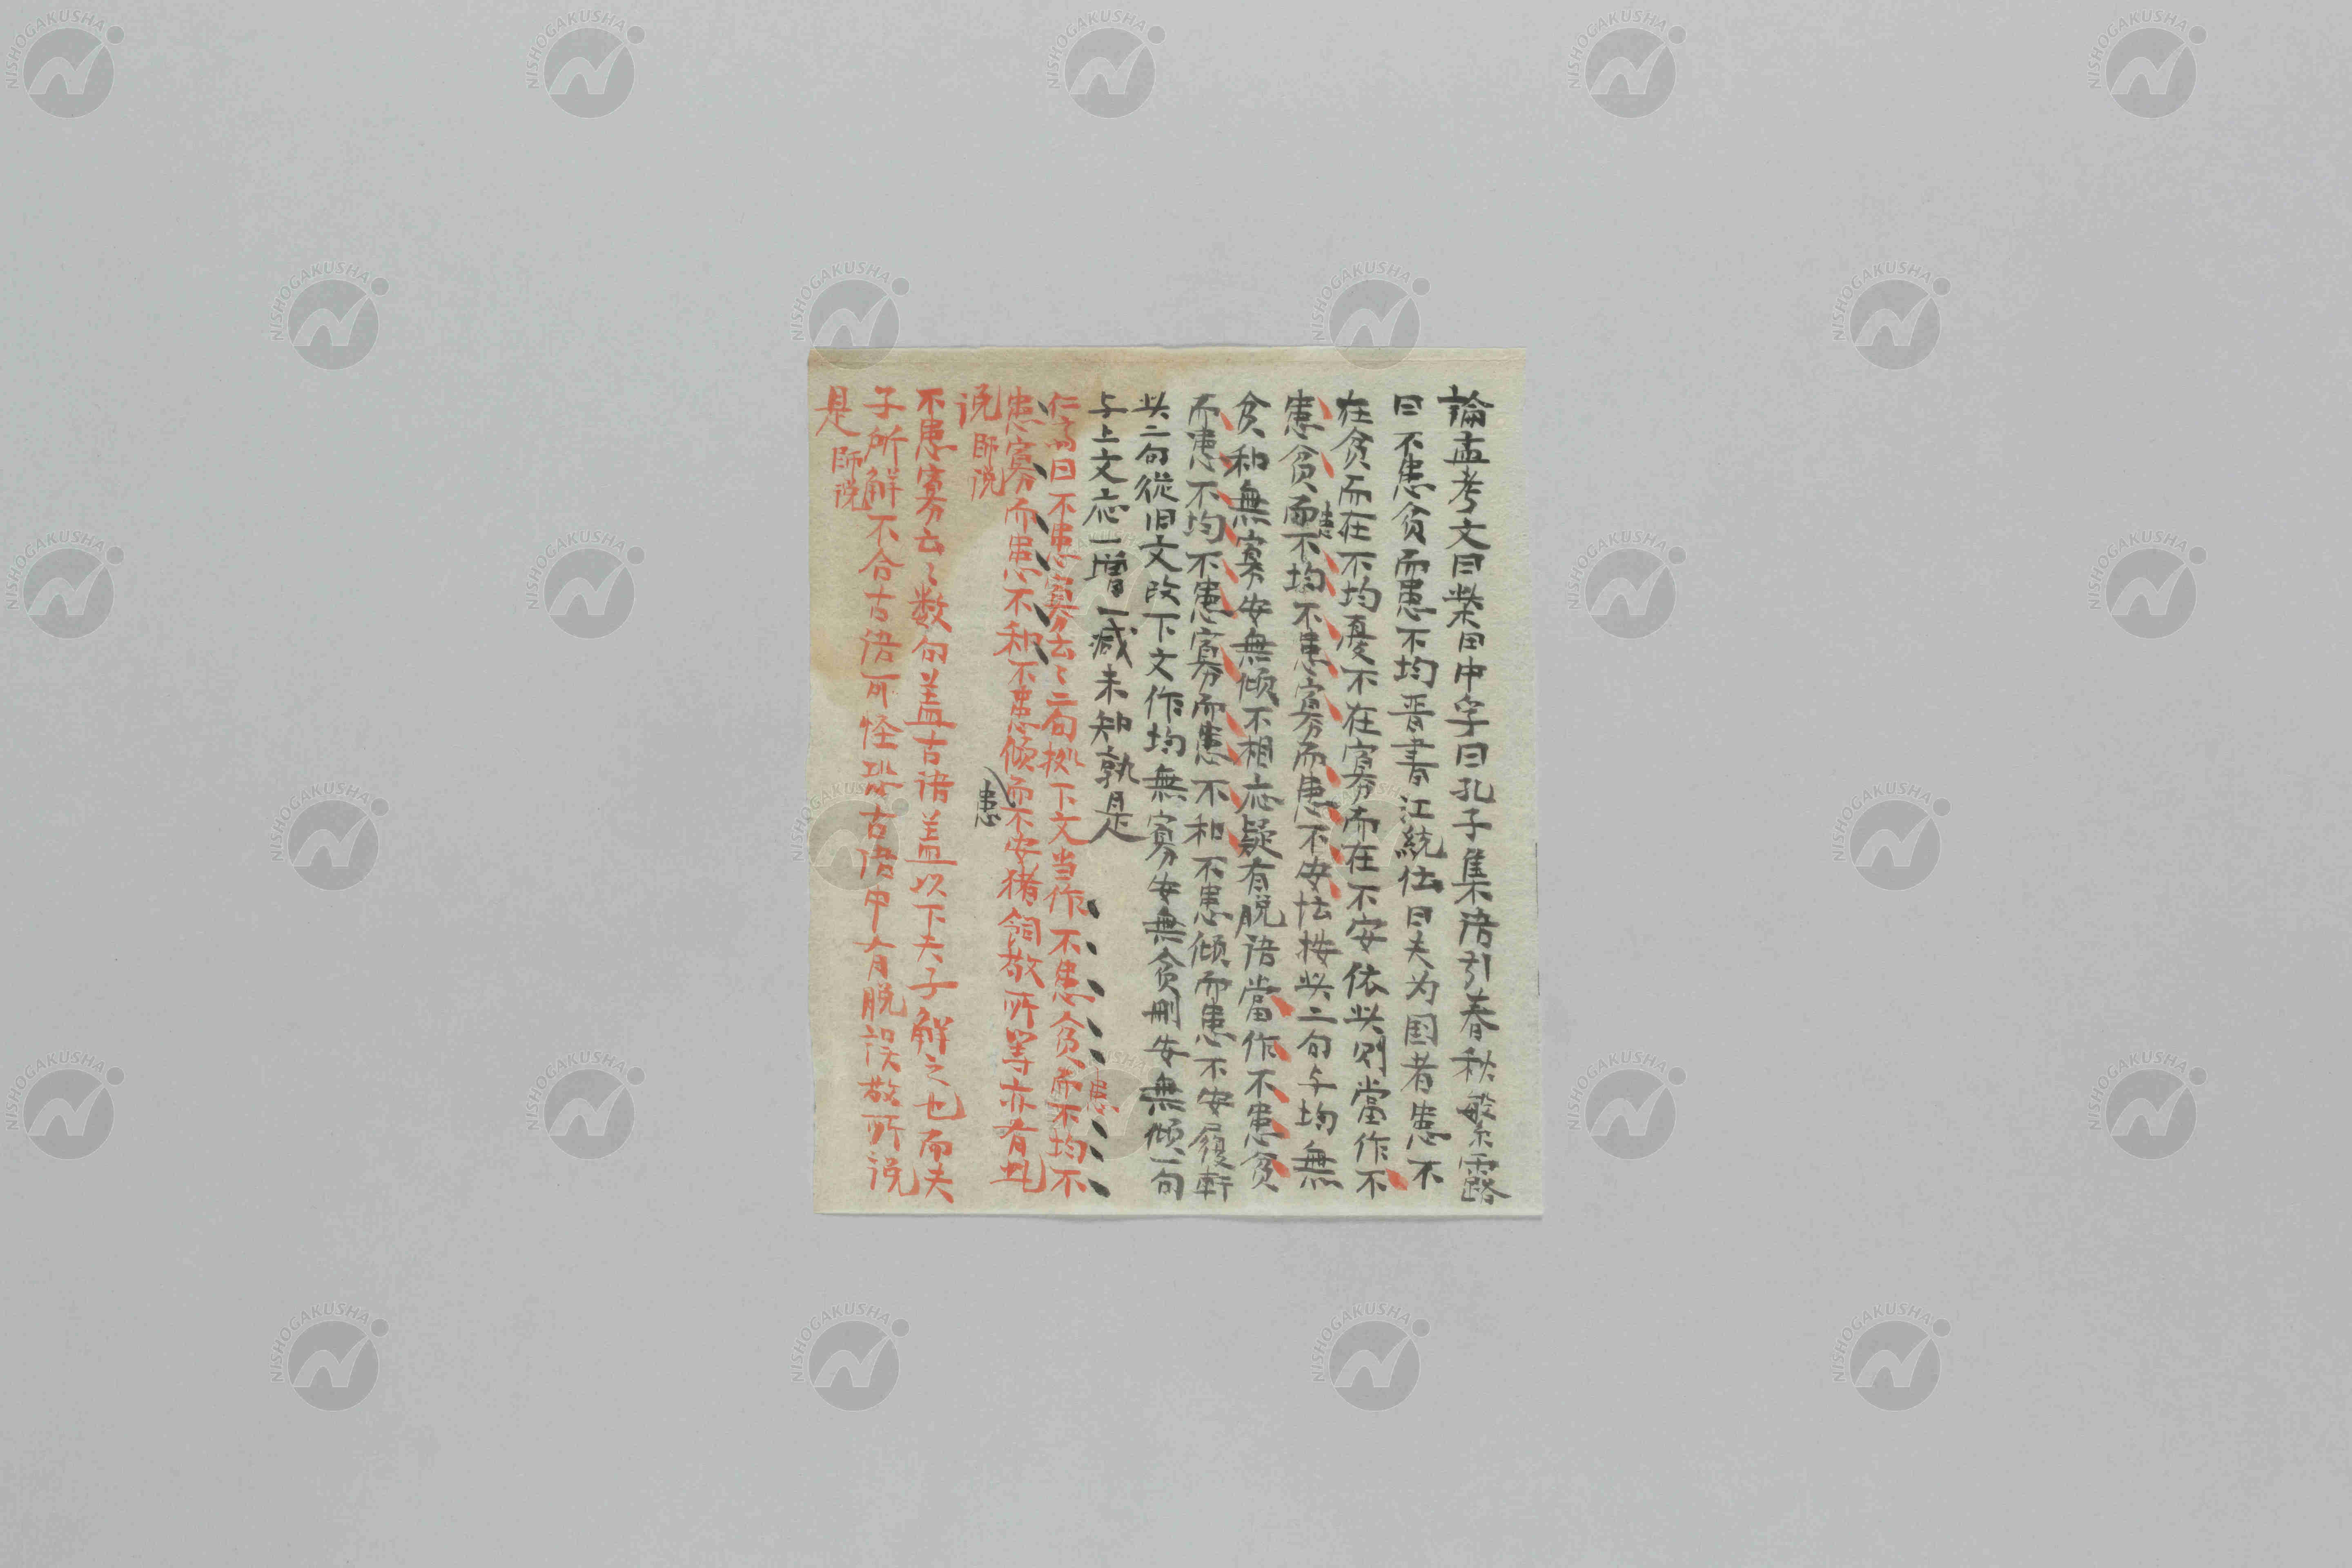 論孟考文曰柴田中孚曰孔子集語引春秋繁露
曰不患貧而患不均晋書江統伝曰夫为国者患不
在貧而在不均憂不在寡而在不安依此則當作不
患貧而患不均不患寡而患不安怯按此二句与均無
貧和無寡安無傾不相応疑有脱語當作不患貧
而患不均不患寡而患不和不患傾而患不安履軒
此二句従旧文改下文作均無寡安無貧刪安無傾一句
与上文応一増一减未知孰是
仁斎曰不患寡云々二句拠下文当作不患貧而患不均不
患寡而患不和不患傾而患不安猪飼敬所等亦有此
说師说
不患寡云々数句盖古語盖以下夫子解之也而夫
子所解不合古語可怪恐古语中有脱误敬所说
是師说